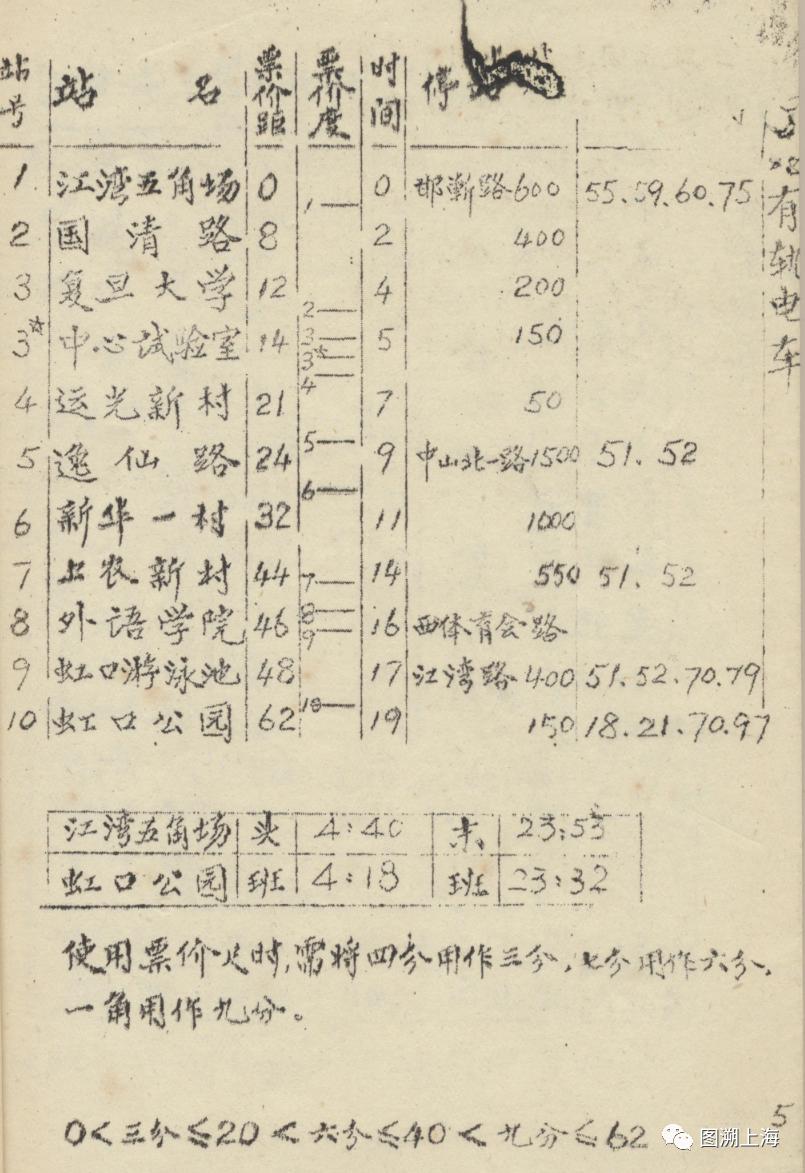 站号 站名 票价距 票价度 时间 停
1 江湾五角场 0 1 0 邯郸路600 55.59.60.75
2 国清路 8 2 400
3 复旦大学 12 2 4 200
3☆ 中心试验室 14 3 3☆ 5 150
4 运光新村 21 4 7 50
5 逸仙路 24 5 9 中山北一路1500 51.52
6 新华一村 32 6 11 1000
7 上农新村 44 7 14 550 51.52
8 外语学院 46 8 16 西体育会路
9 虹口游泳池 48 9 17 江湾路400 51.52.70.79
10 虹口公园 62 10 19 150 18.21.70.97
有轨电车
江湾五角场 头 4:40 末 23:53
虹口公园 班 4:18 班 23:32
使用票价尺时,需将四分用作三分,七分用作六分,
一角用作九分。
0<三分≤20<六分≤40<九分≤62
5
图溯上海